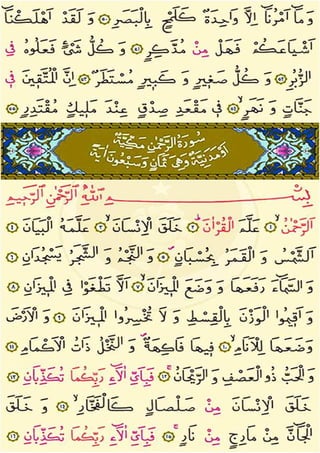 وَمَٓا اَمْرُنَٓا اِلَّا وَاحِدَةٌ كَلَمْحٍ بِالْبَصَرِ ﴿٥٠﴾ وَلَقَدْ اَهْلَكْنَٓا
اَشْيَاعَكُمْ فَهَلْ مِنْ مُدَّكِرٍ ﴿٥١﴾ وَكُلُّ شَىْءٍ فَعَلُوهُ فِى
الزُّبُرِ ﴿٥٢﴾ وَكُلُّ صَغٖيرٍ وَكَبٖيرٍ مُسْتَطَرٌ ﴿٥٣﴾ اِنَّ الْمُتَّقٖينَ فٖى
جَنَّاتٍ وَنَهَرٍ ﴿٥٤﴾ فٖى مَقْعَدِ صِدْقٍ عِنْدَ مَلٖيكٍ مُقْتَدِرٍ ﴿٥٥﴾
سُورَةُ الرَّحْمٰنِ مَكِّيَّةٌ
اَوْ مَدَنِيَّةٌ وَهِىَ ثَمَانٍ وَسَبْعُونَ اٰيَةً
بِسْمِ اللّٰهِ الرَّحْمٰنِ الرَّحٖيمِ
اَلرَّحْمٰنُ ﴿١﴾ عَلَّمَ الْقُرْاٰنَ ﴿٢﴾ خَلَقَ الْاِنْسَانَ ﴿٣﴾ عَلَّمَهُ الْبَيَانَ ﴿٤﴾
اَلشَّمْسُ وَالْقَمَرُ بِحُسْبَانٍ ﴿٥﴾ وَالنَّجْمُ وَالشَّجَرُ يَسْجُدَانِ ﴿٦﴾
وَالسَّمَٓاءَ رَفَعَهَا وَوَضَعَ الْمٖيزَانَ ﴿٧﴾ اَلَّا تَطْغَوْا فِى الْمٖيزَانِ ﴿٨﴾
وَاَقٖيمُوا الْوَزْنَ بِالْقِسْطِ وَلَا تُخْسِرُوا الْمٖيزَانَ ﴿٩﴾ وَالْاَرْضَ
وَضَعَهَا لِلْاَنَامِ ﴿١٠﴾ فٖيهَا فَاكِهَةٌ وَالنَّخْلُ ذَاتُ الْاَكْمَامِ ﴿١١﴾
وَالْحَبُّ ذُوالْعَصْفِ وَالرَّيْحَانُ ﴿١٢﴾ فَبِاَىِّ اٰلَٓاءِ رَبِّكُمَا تُكَذِّبَانِ ﴿١٣﴾
خَلَقَ الْاِنْسَانَ مِنْ صَلْصَالٍ كَالْفَخَّارِ ﴿١٤﴾ وَخَلَقَ
الْجَٓانَّ مِنْ مَارِجٍ مِنْ نَارٍ ﴿١٥﴾ فَبِاَىِّ اٰلَٓاءِ رَبِّكُمَا تُكَذِّبَانِ ﴿١٦﴾